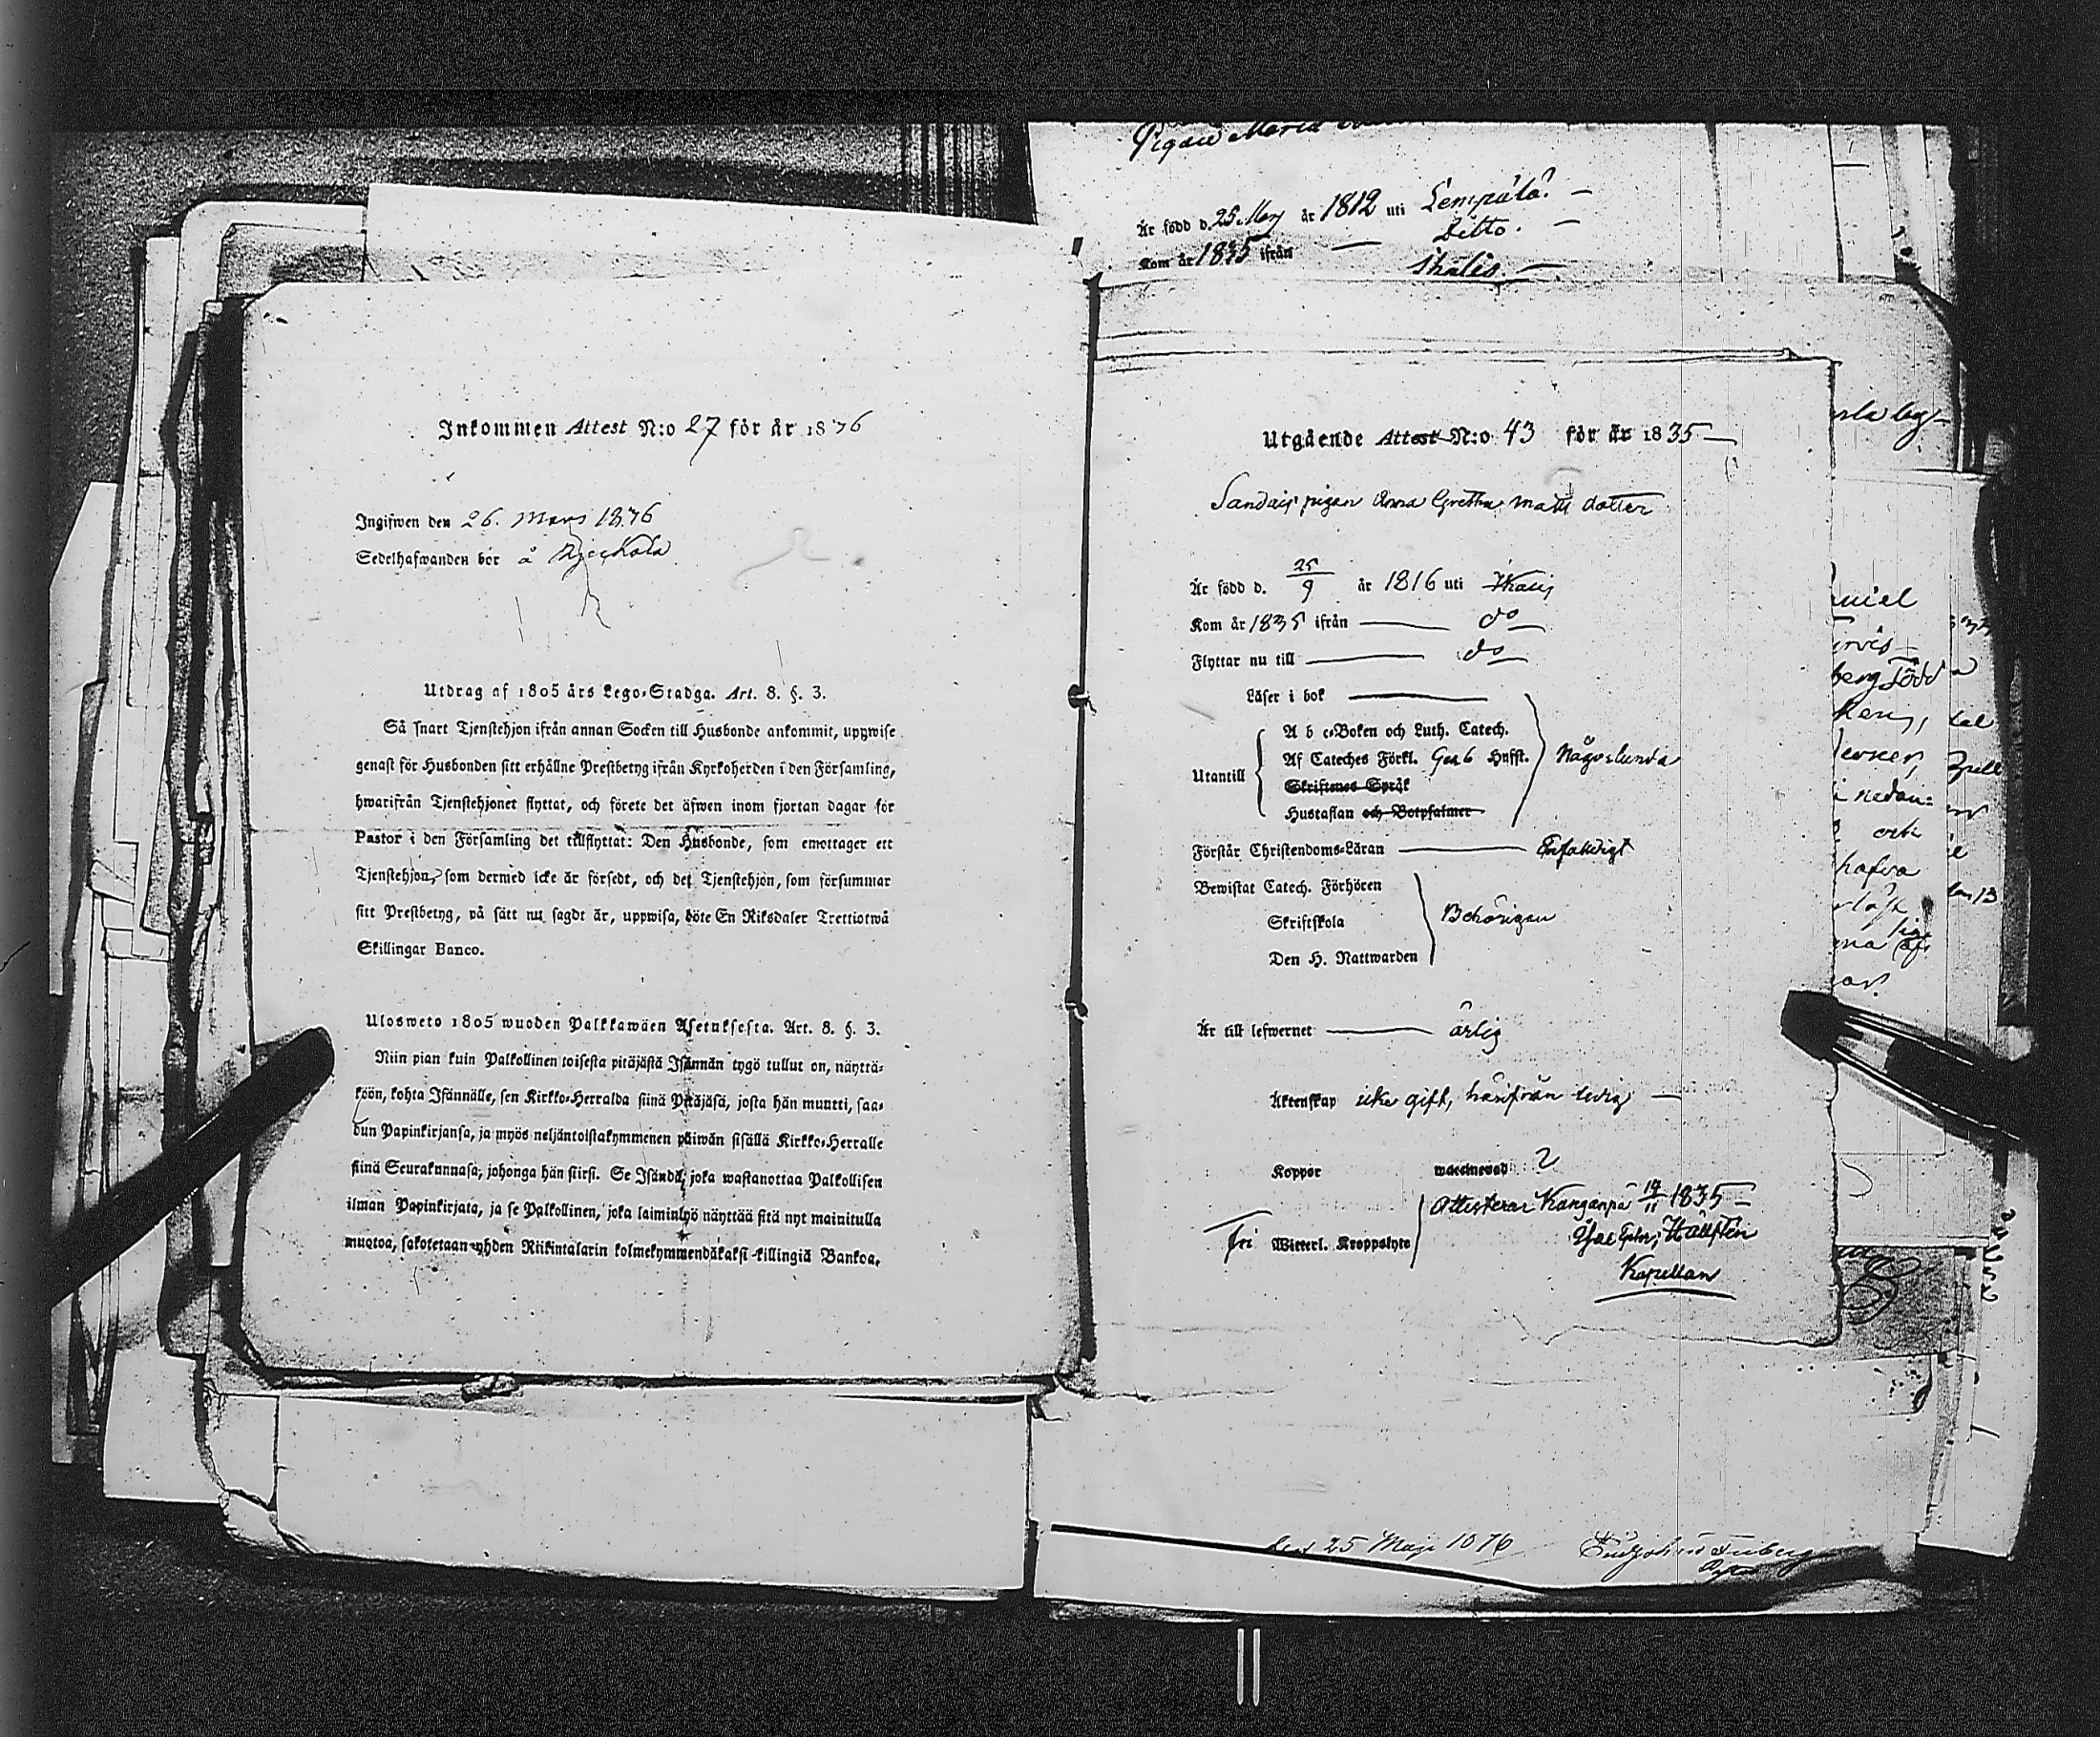 Inkommen Attest N:o 27 för år 1836
Ingifwen den 26. Mars 1836
Sedelhafwanden bor å
Utdrag af 1805 års Lego-Stadga. Art. 8. §. 3.
Så snart Tjenstehjon ifrån annan Socken till Husbonde ankommit, uppwise
genast för Husbonden sitt erhållne Prestbetyg ifrån Kyrkoherden i den Församling,
hwarifrån Tjenstehjonet flyttat, och förete det äfwen inom fjortan dagar för
Pastor i den Församling det tillflyttat: Den Husbonde, som emottager ett
Tjenstehjon, som dermed icke är försedt, och det Tjenstehjon, som försummar
sitt Prestbetyg, på sätt nu sagdt är, uppwisa, böte En Riksdaler Trettiotwå
Skillingar Banco.
Ulosweto 1805 wuoden Palkkawäen Asetuksesta. Art. 8. §. 3.
Niin pian kuin Palkollinen toisesta pitäjästä Isännän tygö tullut on, näyttä-
köön, kohta Isännälle, sen Kirkko-Herralda siinä Pitäjäsä, josta hän muutti, saa-
dun Papinkirjansa, ja myös neljäntoistakymmenen päiwän sisällä Kirkko-Herralle
siinä Seurakunnasa, johonga hän siirsi. Se Isändä, joka wastanottaa Palkollisen
ilman Papinkirjata, ja se Palkollinen, joka laiminlyö näyttää sitä nyt mainitulla
muotoa, sakotetaan yhden Riikintalarin kolmekymmendäkaksi killingiä Bankoa.
Pigan Maria
Är född d. 25 Marj år 1812 uti Lempälä. —
Kom år 1835 ifrån — Ditto. —
Ikalis. —
Utgående Attest N:o 43 för år 1835 —
pigan Anna Gretha Matts dotter
Är född d. 25/9 år 1816 uti Ikalis
Kom år 1835 ifrån — do —
Flyttar nu till — do —
Läser i bok —
Utantill
A b c-Boken och Luth. Catech.
Af Cateches Förkl. Hufst.
Skriftenes Språk
Hustaflan och Botpsalmer
Någorlunda
Förstår Christendoms-Läran — Enfaldigt
Bewistat Catech. Förhören
Skriftskola
Den H. Nattwarden
Behörigen
Är till lefwernet — ärlig
Äktenskap icke gift, härifrån ledig —
Koppor
Fri Witterl. Kroppslyte
Attesterar Kanganpä 19/11 1835 —
Hällsten
Kapellan
den 25 Maji 1836